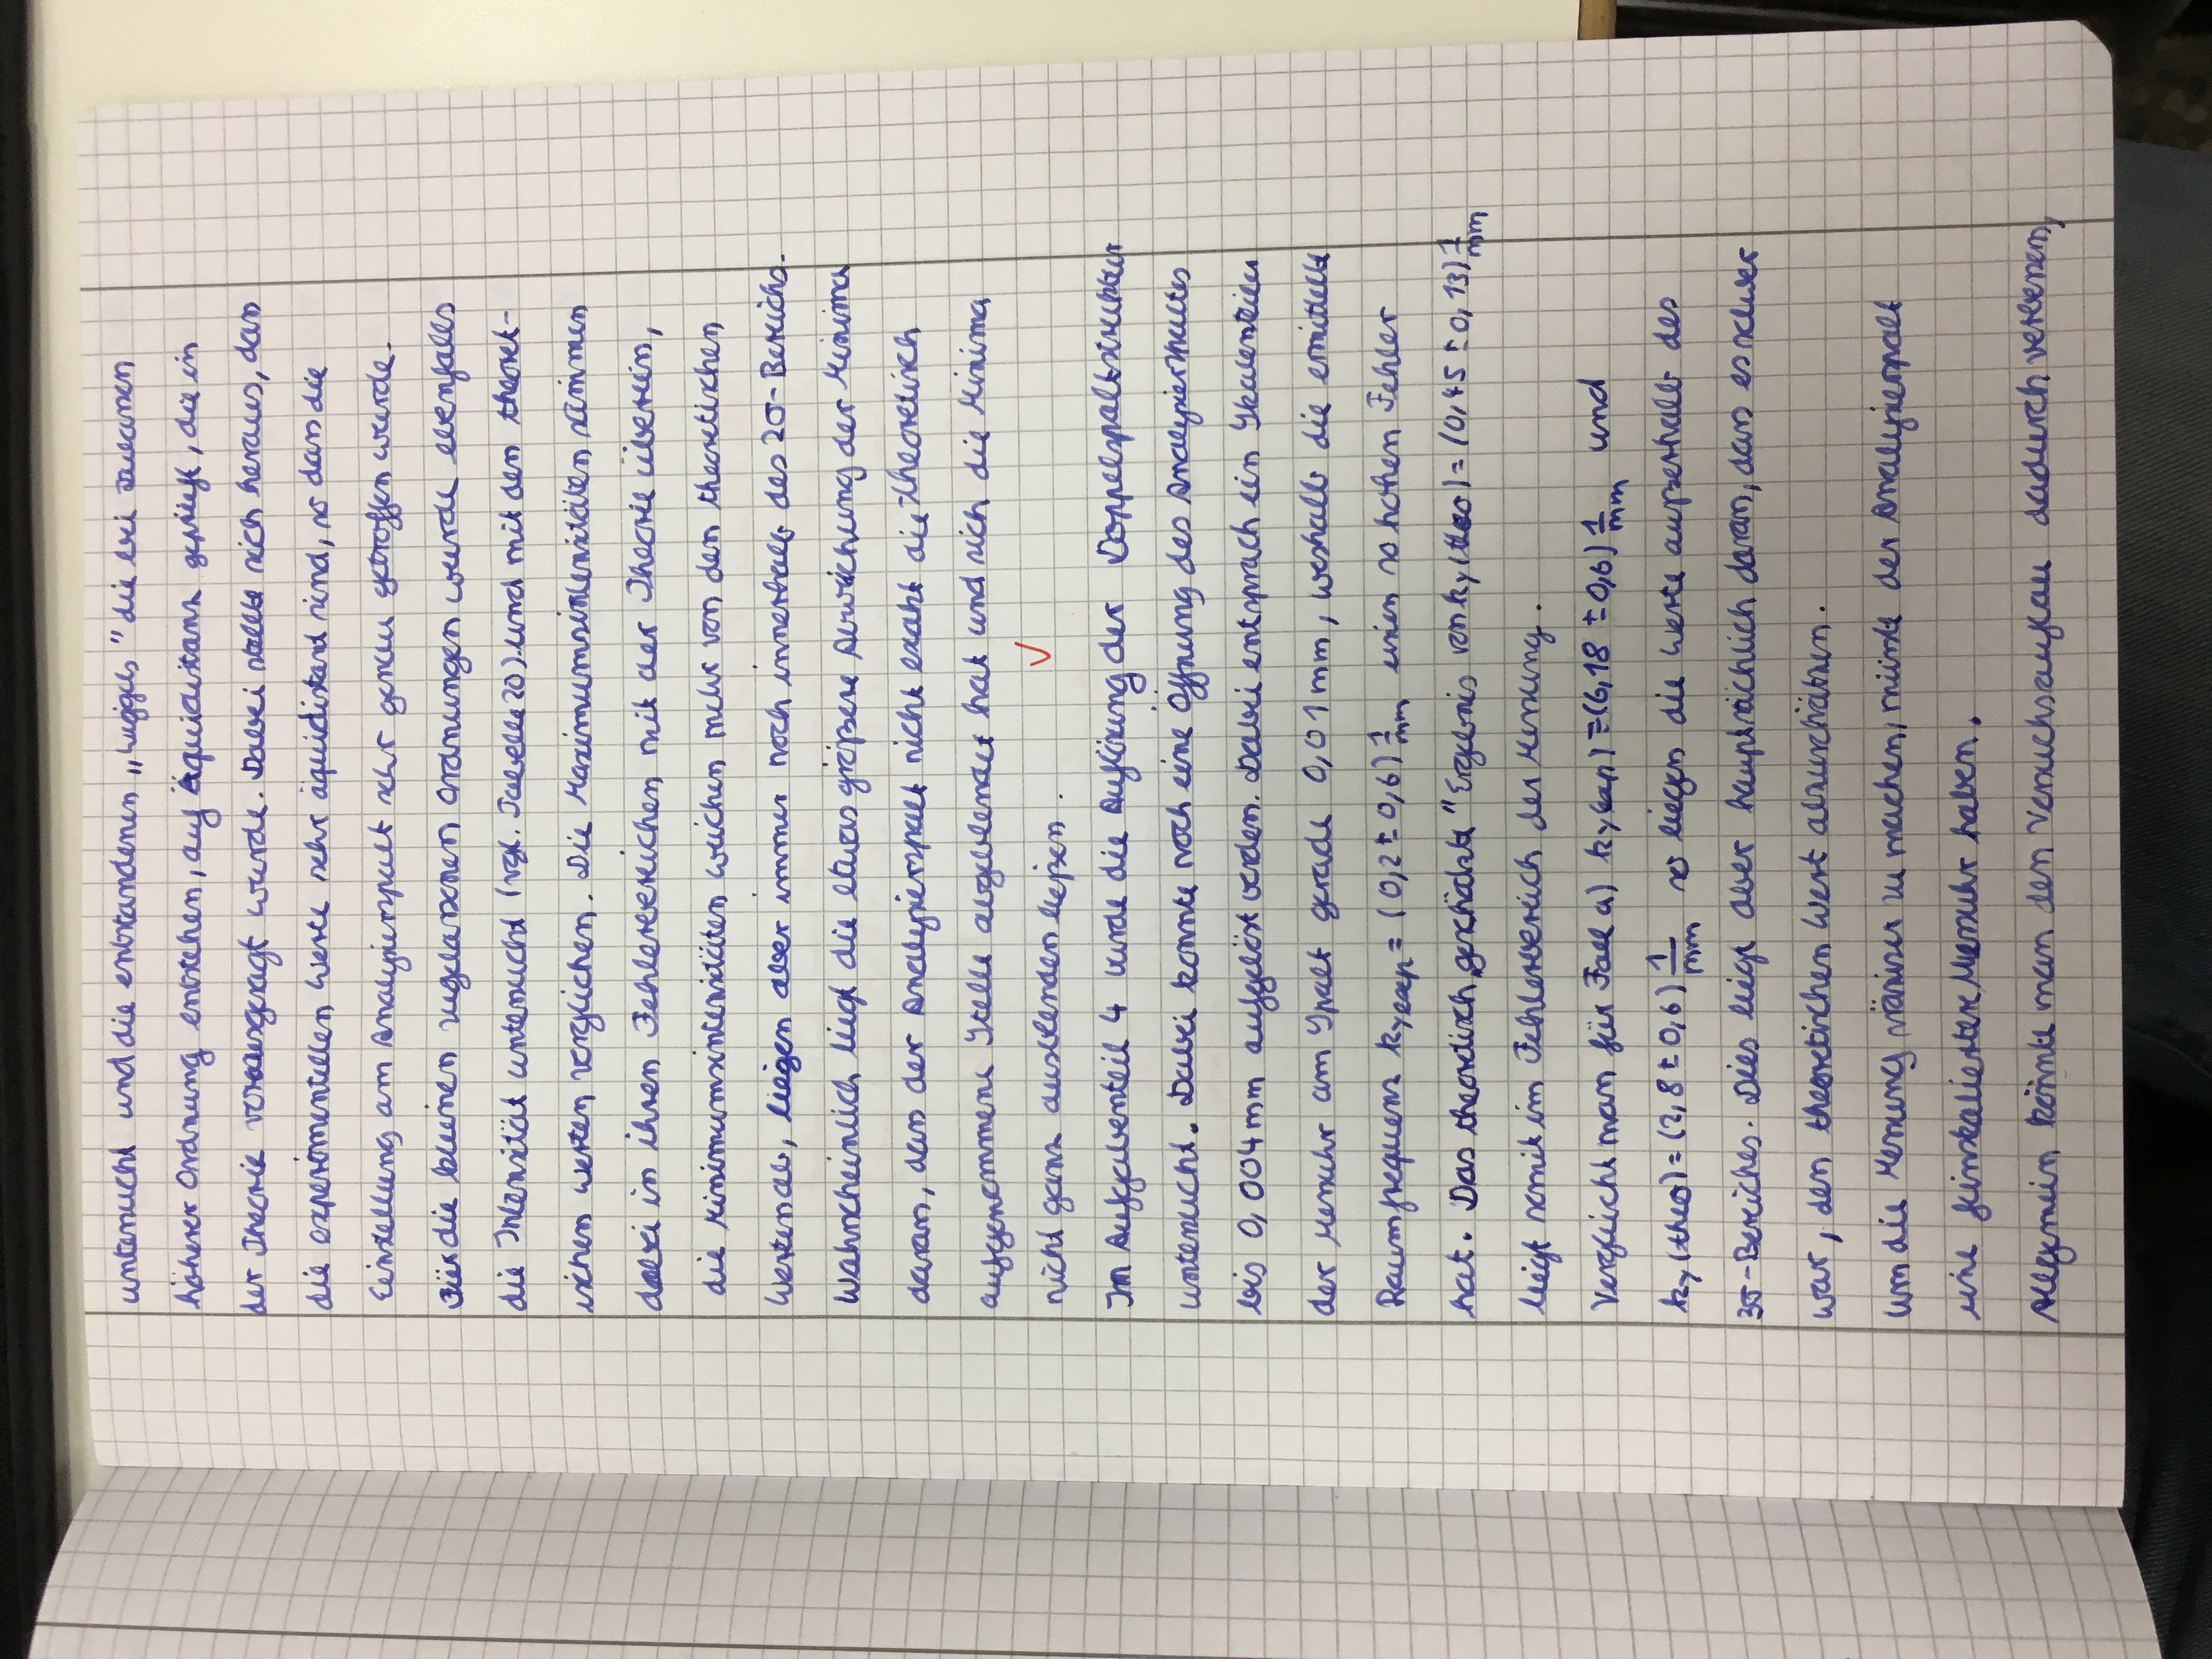 untersucht und die entstandenen „Wiggels" die bei
höherer Ordnung entstehen, auf Äquidistanz geprüft, die in
der Theorie vorausgesagt wurde. Dabei stellte sich heraus, dass
die experimentellen Werte sehr äquidistand sind, so dass die
Einstellung am Analysierspalt sehr genau getroffen wurde.
Für die kleinen zugelassenen Ordnungen wurde ebenfalls
die Intensität untersucht (vgl. Tabelle 20) und mit den theoret-
ischen Werten verglichen. Die Maximumsintensitäten stimmen
dabei in ihren Fehlerbereichen mit der Theorie überein,
die Minimumsintensitäten weichen mehr von den theoretischen
Werten ab, liegen aber immer noch innerhalb des 2σ-Bereichs.
Wahrscheinlich liegt die etwas größere Abweichung der Minima
daran, dass der Analysierspalt nicht exakt die theoretisch
aufgenommene Stelle abgeblendet hat und sich die Minima
nicht ganz ausblenden ließen. ✓
Im Aufgabenteil 4 wurde die Auflösung der Doppelspaltstruktur
untersucht. Dabei konnte noch eine Öffnung des Analysierspaltes
bis 0,004 mm aufgelöst werden. Dabei entsprach ein Skalenteil
der Messuhr am Spalt gerade 0,01 mm, weshalb die ermittelte
Raumfrequenz ky exp = (0,2 ± 0,6) 1/mm einen so hohen Fehler
hat. Das theoretisch „geschätzte" Ergebnis von ky (theo) = (0,45 ± 0,13) 1/mm
liegt somit im Fehlerbereich der Messung.
Vergleicht man für Fall a) ky (exp) = (6,18 ± 0,6) 1/mm und
ky (theo) = (2,8 ± 0,6) 1/mm so liegen die Werte außerhalb des
3σ-Bereiches. Dies liegt aber hauptsächlich daran, dass es schwer
war, den theoretischen Wert abzuschätzen.
Um die Messung präziser zu machen, müsste der Analysierspalt
eine feinskaliertere Messuhr haben.
Allgemein könnte man den Versuchsaufbau dadurch verbessern,